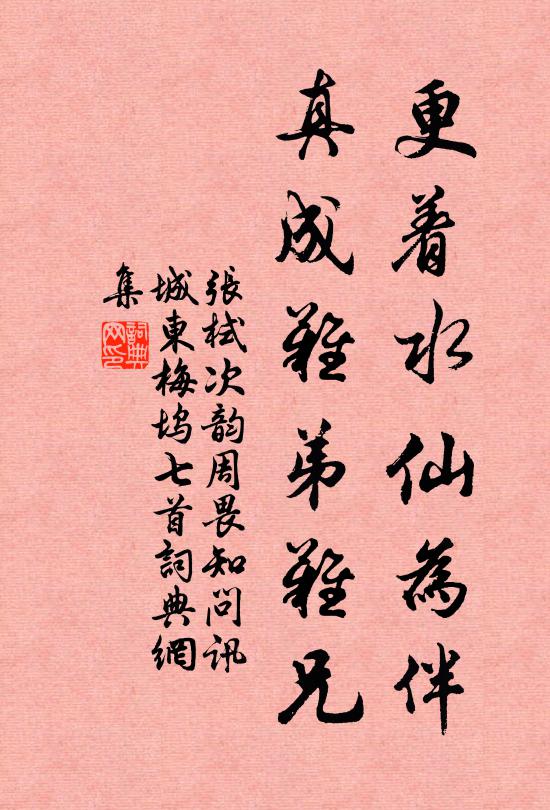 更着水仙為伴
真成難弟難兄
張栻次韵周畏知問訊
城東梅塢七首詞典網
集
詞典
网印